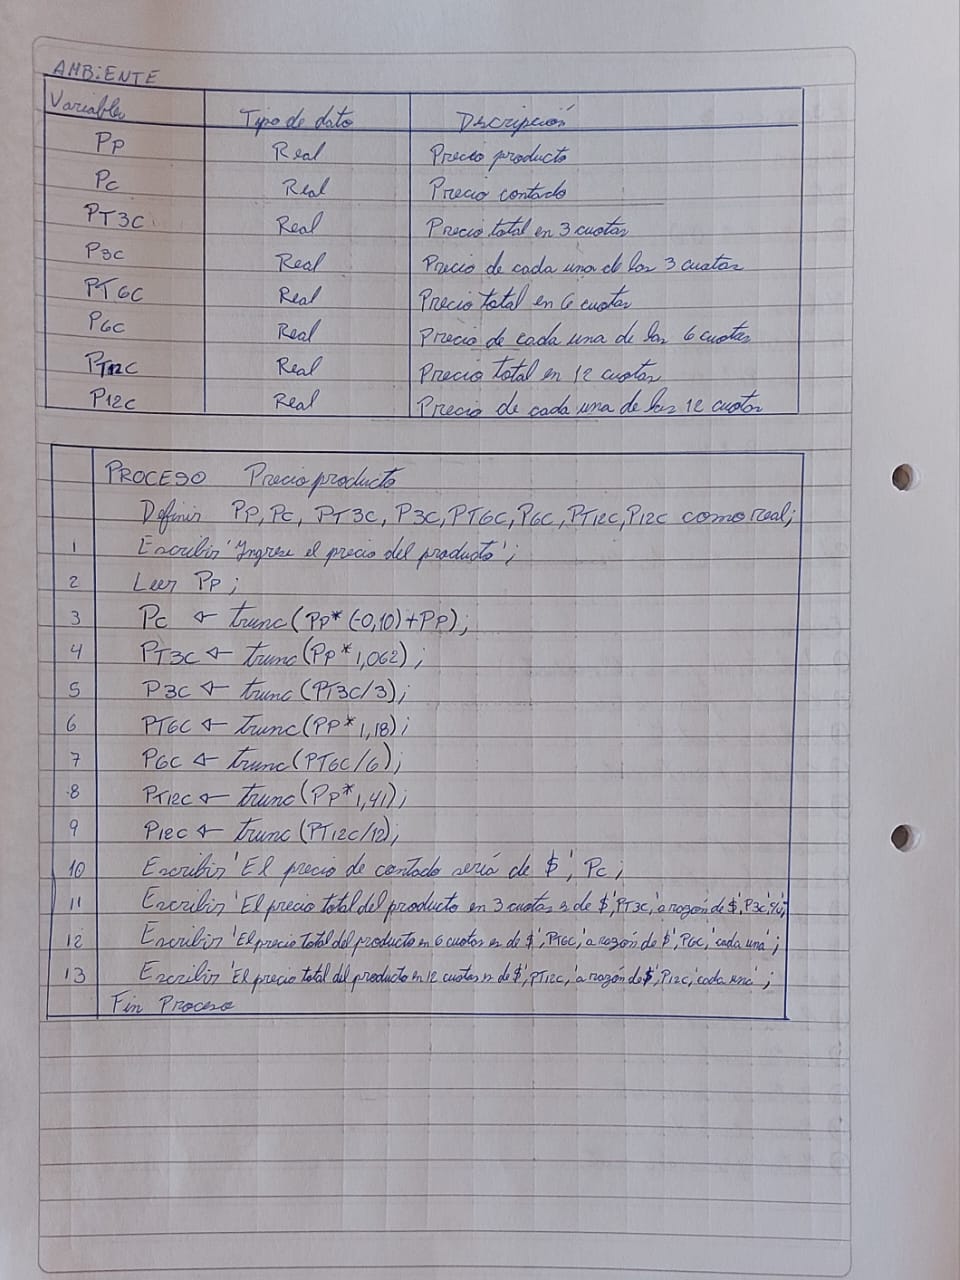 AMBIENTE
Variables Tipo de dato Dscripción
Pp Real Precio producto
Pc Real Precio contado
PT3C Real Precio total en 3 cuotas
P3C Real Precio de cada una de las 3 cuotas
PT6C Real Precio total en 6 cuotas
P6C Real Precio de cada una de las 6 cuotas
PT12C Real Precio total en 12 cuotas
P12C Real Precio de cada una de las 12 cuotas
PROCESO Precio producto
Definir Pp, Pc, PT3C, P3C, PT6C, P6C, PT12C, P12C como real;
1 Escribir 'Ingrese el precio del producto';
2 Leer Pp;
3 Pc ← trunc(Pp*(-0,10)+Pp);
4 PT3C ← trunc(Pp*1,062);
5 P3C ← trunc(PT3C/3);
6 PT6C ← trunc(Pp*1,18);
7 P6C ← trunc(PT6C/6);
8 PT12C ← trunc(Pp*1,41);
9 P12C ← trunc(PT12C/12);
10 Escribir 'El precio de contado sería de $', Pc;
11 Escribir 'El precio total del producto en 3 cuotas es de $', PT3C, 'a razón de $', P3C,
12 Escribir 'El precio total del producto en 6 cuotas es de $', PT6C, 'a razón de $', P6C, 'cada una';
13 Escribir 'El precio total del producto en 12 cuotas es de $', PT12C, 'a razón de $', P12C, 'cada una';
Fin Proceso